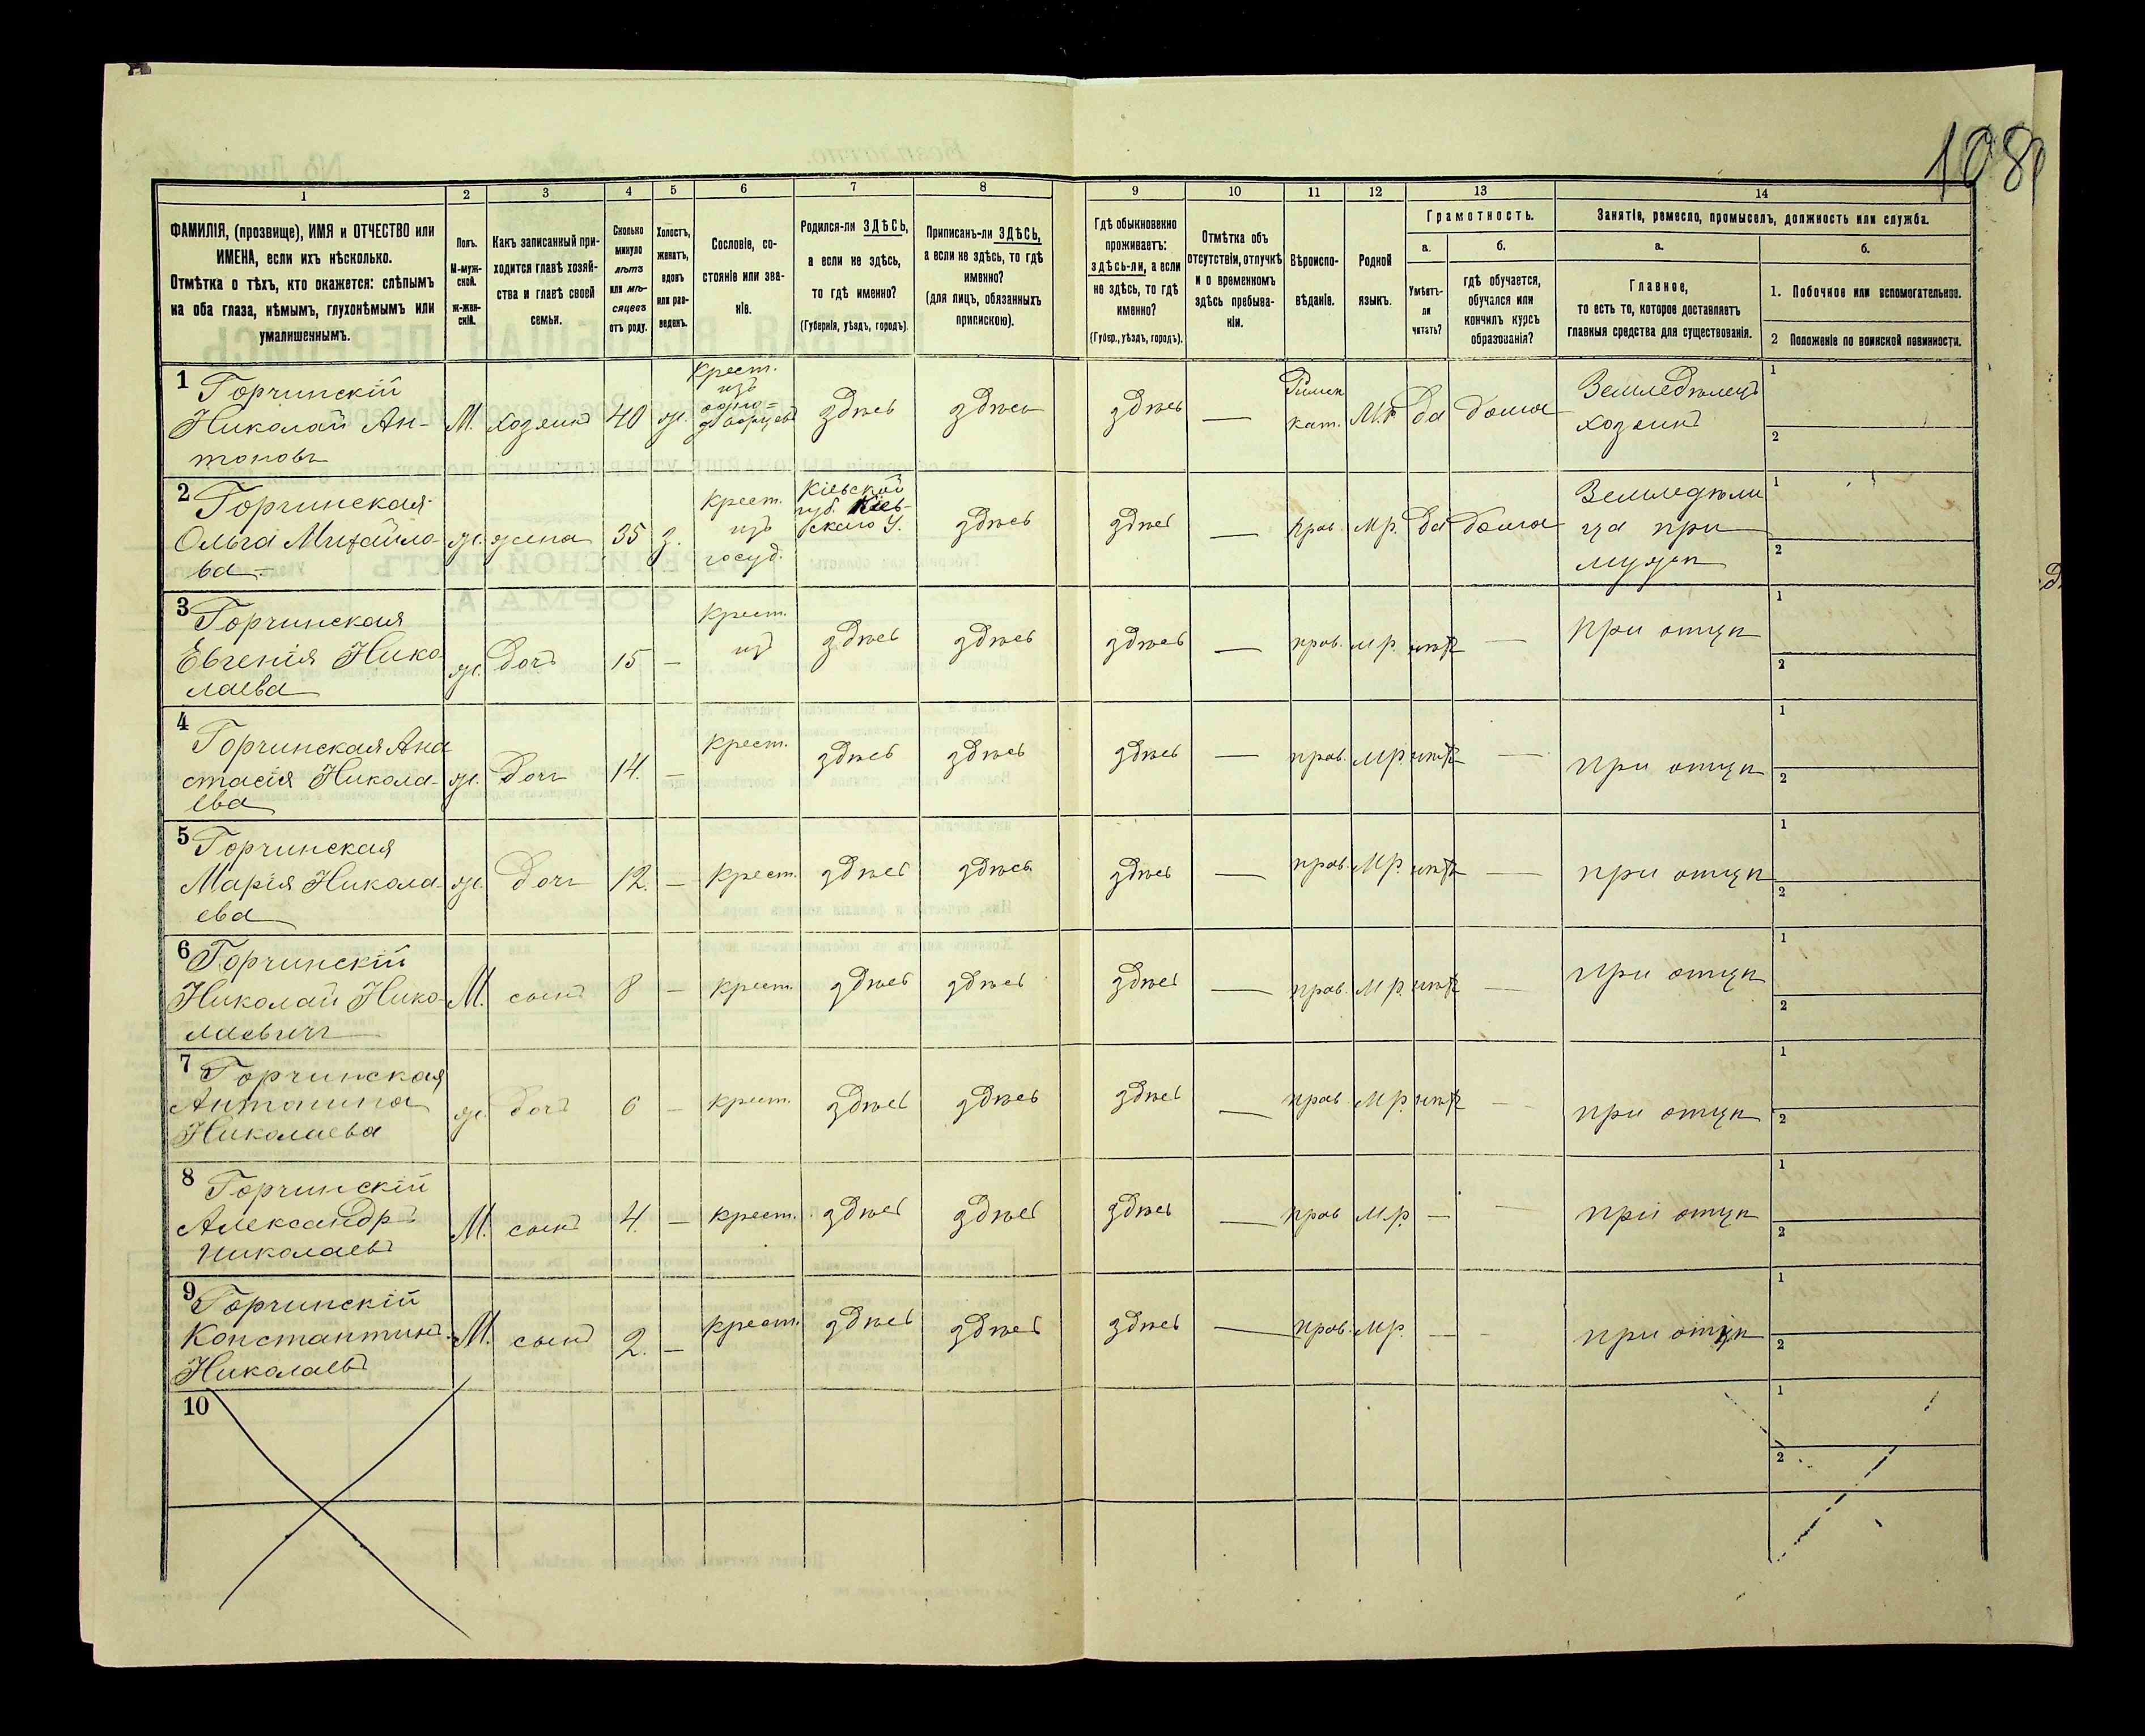 108
1 2 3 4 5 6 7 8 9 10 11 12 13 14
ФАМИЛІЯ, (прозвище), ИМЯ и ОТЧЕСТВО или
ИМЕНА, если ихъ нѣсколько.
Отмѣтка о тѣхъ, кто окажется: слѣпымъ
на оба глаза, нѣмымъ, глухонѣмымъ или
умалишеннымъ.
Полъ.
М-муж-
ской.
ж-жен-
скій.
Какъ записанный при-
ходится главѣ хозяй-
ства и главѣ своей
семьи.
Сколько
минуло
лѣтъ
или мѣ-
сяцевъ
отъ роду.
Холостъ,
женатъ,
вдовъ
или раз-
веденъ.
Сословіе, со-
стояніе или зва-
ніе.
Родился-ли ЗДѢСЬ,
а если не здѣсь,
то гдѣ именно?
(Губернія, уѣздъ, городъ).
Приписанъ-ли ЗДѢСЬ,
а если не здѣсь, то гдѣ
именно?
(для лицъ, обязанныхъ
припискою).
Гдѣ обыкновенно
проживаетъ:
здѣсь-ли, а если
не здѣсь, то гдѣ
именно?
(Губер., уѣздъ, городъ).
Отмѣтка объ
отсутствіи, отлучкѣ
и о временномъ
здѣсь пребыва-
ніи.
Вѣроиспо-
вѣданіе.
Родной
языкъ.
Грамотность.
а.
Умѣетъ-
ли
читать?
б.
гдѣ обучается,
обучался или
кончилъ курсъ
образованія?
Занятіе, ремесло, промыселъ, должность или служба.
а.
Главное,
то есть то, которое доставляетъ
главныя средства для существованія.
б.
1. Побочное или вспомогательное.
2 Положеніе по воинской повинности.
1
Горчинскій
Николай Ан-
тоновъ
М. хозяинъ 40 ж.
Крест.
изъ
одно-
дворцевъ
здѣсь здѣсь здѣсь —
Римск
кат.
М.р да дома
Земледѣлецъ
хозяинъ
1
2
2
Горчинская
Ольга Михайло-
ва
ж. жена 35 з.
Крест.
изъ
госуд.
Кіевской
губ. Кіев-
скаго у.
здѣсь здѣсь —
прав. М р. да дома
Земледѣли
ца при
мужѣ
1
2
3
Горчинская
Евгенія Нико
лаева
ж. дочь 15 —
Крест.
изъ
здѣсь здѣсь здѣсь — прав. м р. нѣтъ — при отцѣ
1
2
4
Горчинская Ана
стасія Никола-
ева
ж. дочь 14. — Крест. здѣсь здѣсь здѣсь — прав. М р нѣтъ — при отцѣ
1
2
5
Горчинская
Марія Никола-
ева
ж. дочь 12. — Крест. здѣсь здѣсь здѣсь — прав. М р. нѣтъ — при отцѣ
1
2
6
Горчинскій
Николай Нико-
лаевичъ
М. сынъ 8 — Крест. здѣсь здѣсь здѣсь — прав. М р. нѣтъ — при отцѣ
1
2
7
Горчинская
Антонина
Николаева
ж. дочь 6 — Крест. здѣсь здѣсь здѣсь — прав. М р. нѣтъ — при отцѣ
1
2
8
Горчинскій
Александръ
Николаевъ
М. сынъ 4. — Крест. здѣсь здѣсь здѣсь — прав М.р. — — при отцѣ
1
2
9
Горчинскій
Константинъ
Николаевъ
М. сынъ 2. — Крест. здѣсь здѣсь здѣсь — прав. М р. — — при отцѣ
1
2
10
1
2